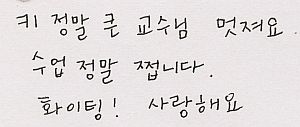 키 정말 큰 교수님 멋져요
수업 정말 쩝니다.
화이팅! 사랑해요